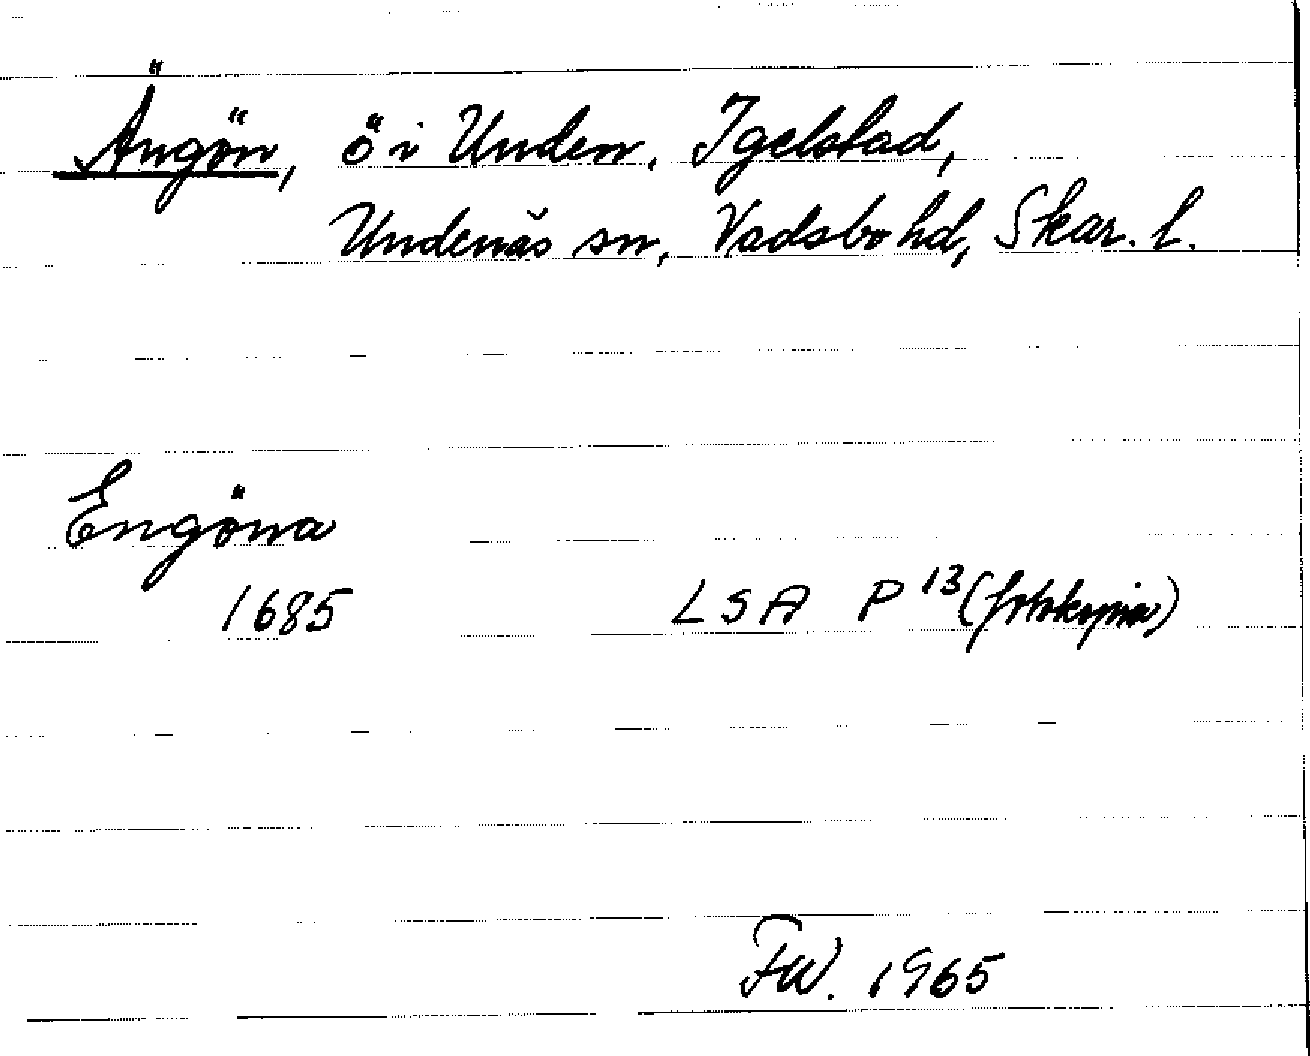 Ängön, ö i Unden, Igelstad,
Undenäs sn, Vadsbo hd, Skar. l.
Engöna
1685 LSA P 13 (fotokopia)
FW. 1965